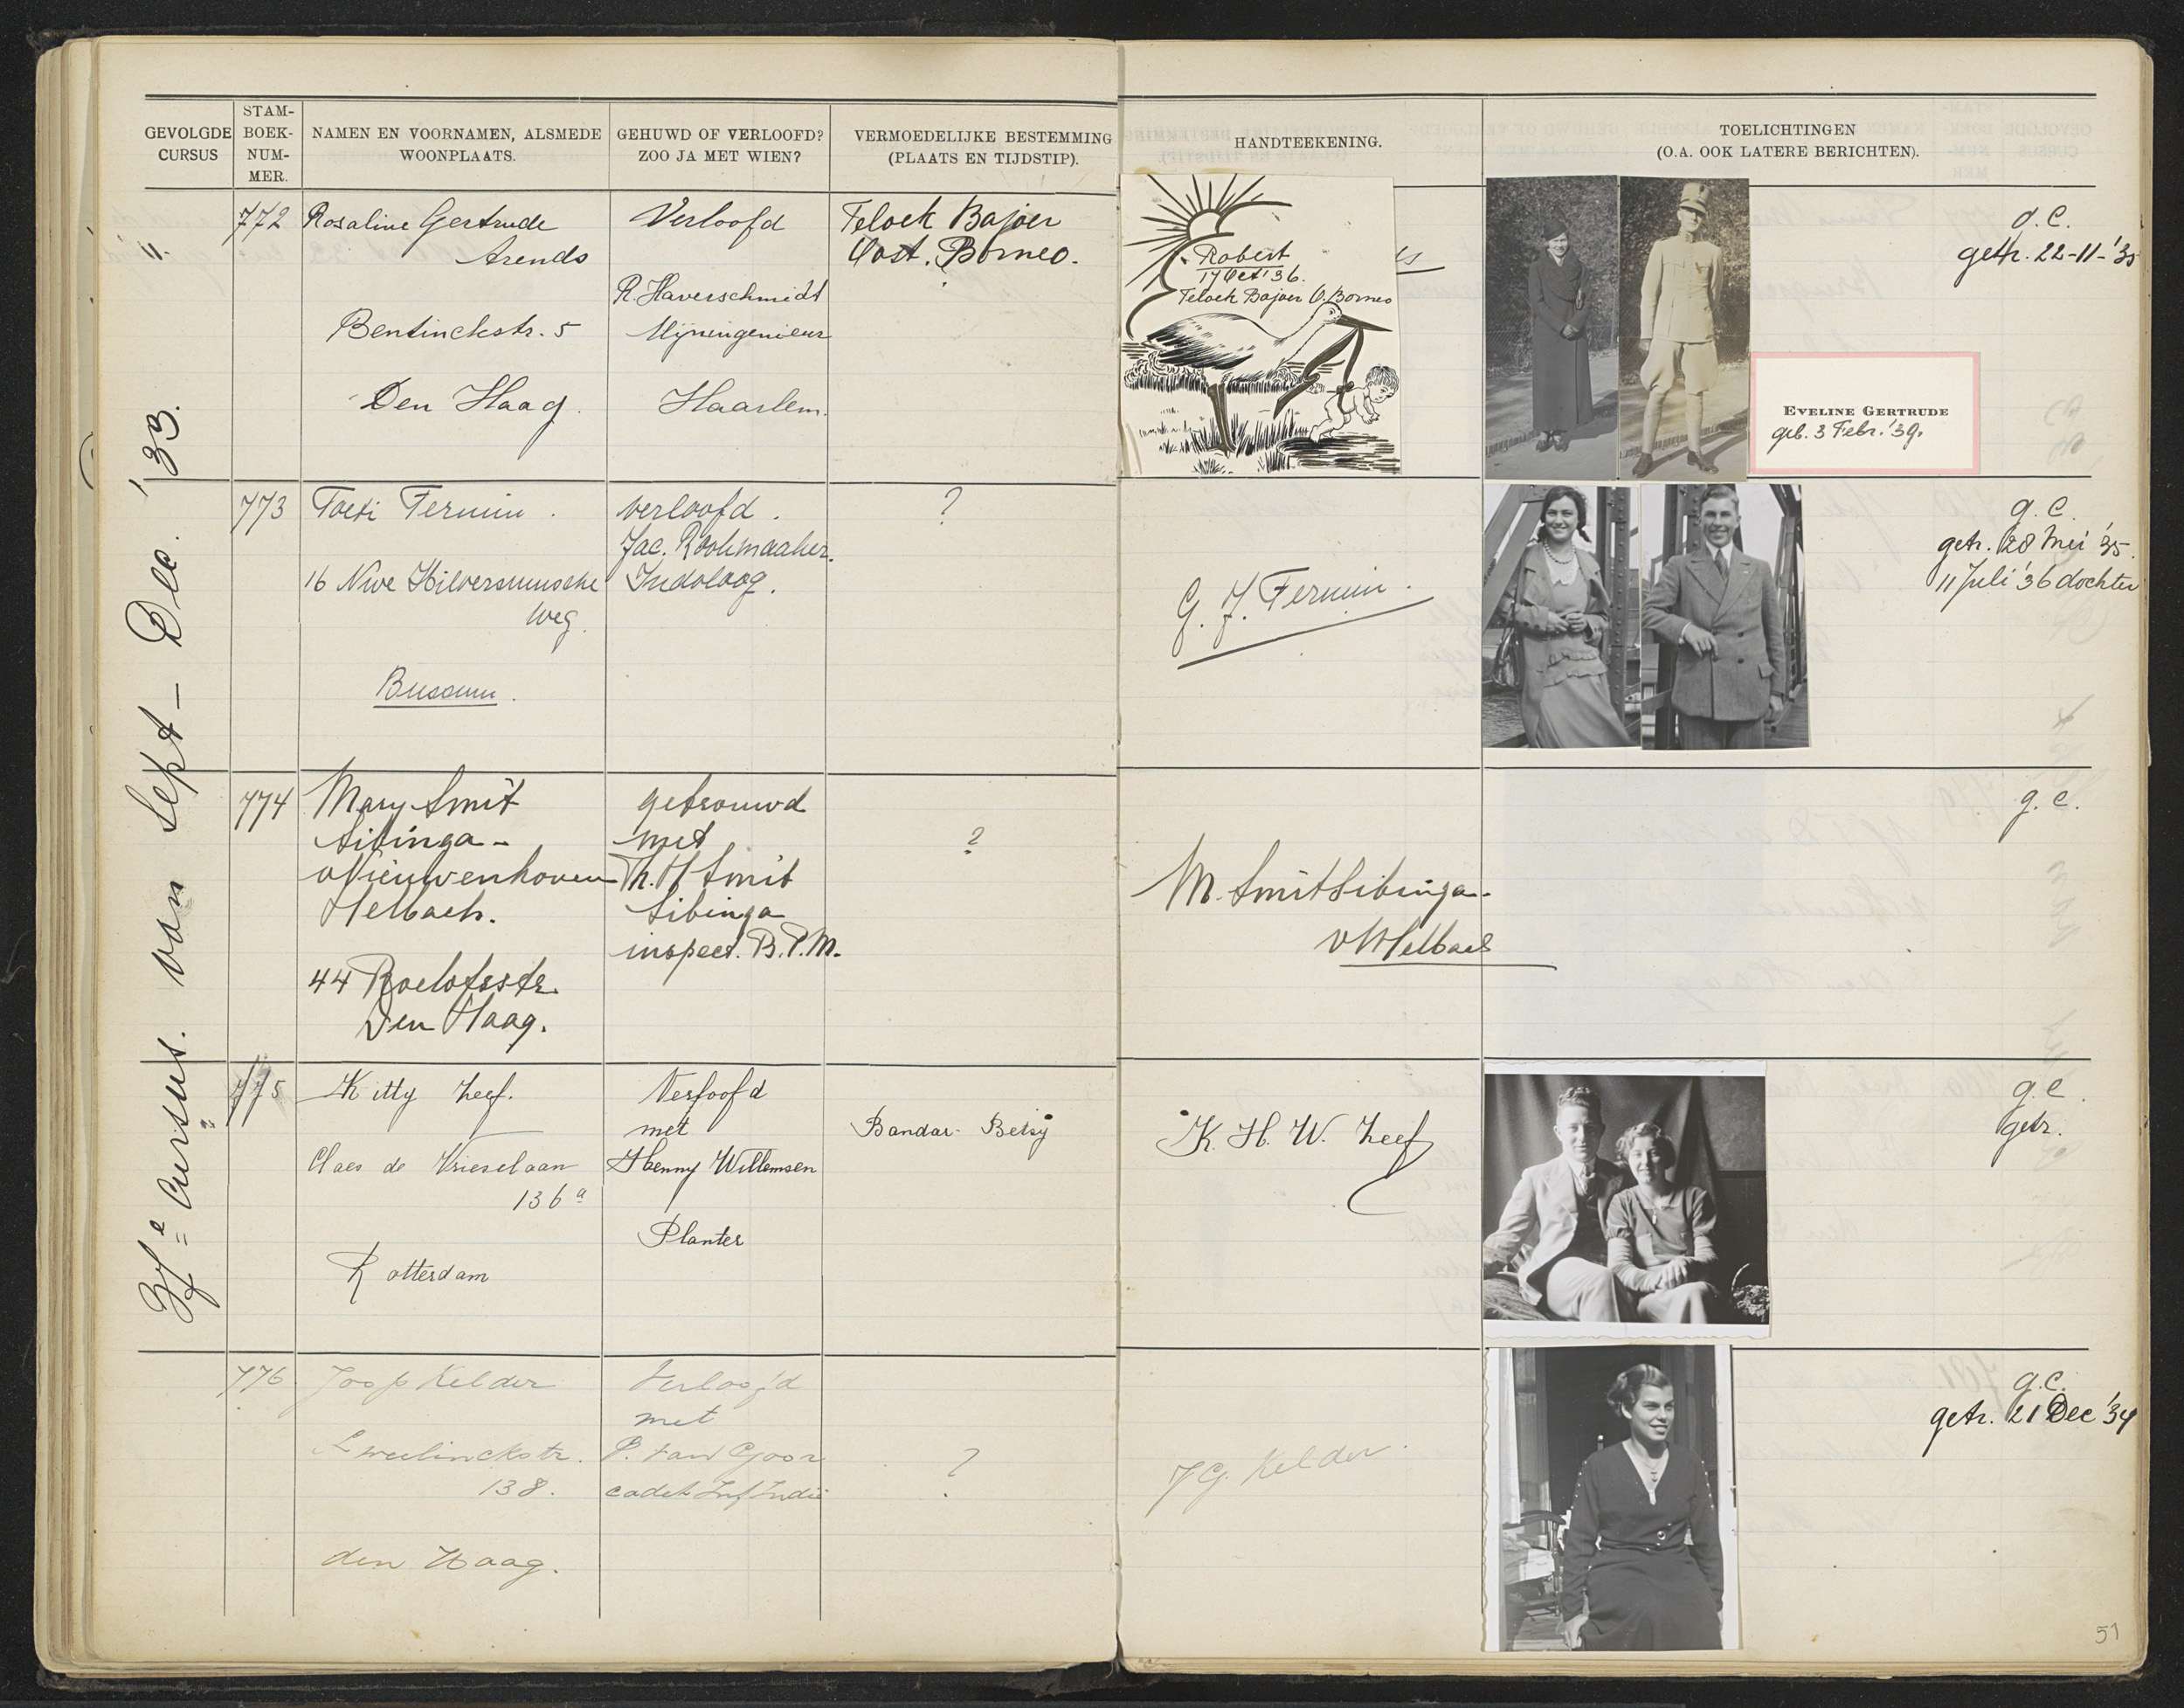 GEVOLGDE
CURSUS
STAM-
BOEK-
NUM-
MER.
NAMEN EN VOORNAMEN, ALSMEDE
WOONPLAATS.
GEHUWD OF VERLOOFD?
ZOO JA MET WIEN?
VERMOEDELIJKE BESTEMMING
(PLAATS EN TIJDSTIP).
HANDTEEKENING.
TOELICHTINGEN
(O.A. OOK LATERE BERICHTEN).
cursus. van Sept - Dec. '33.
772
Rosaline Gertrude
Arends
Bentinckstr. 5
Den Haag.
Verloofd
R. Haverschmidt
Mijningenieur
Haarlem.
Teloek Bajoer
Oost. Borneo.
Robert
17 Oct '36.
Teloek Bajoer O. Borneo
EVELINE GERTRUDE
geb. 3 Febr. '39.
d. C.
getr. 22-11-'35
773
Toeti Fermin.
16 Nwe Hilversumsche
weg.
Bussum.
verloofd.
Jac. Rookmaaker.
Indoloog.
?
G. J. Fermin.
g. C.
getr. 28 Mei '35.
11 Juli '36 dochter
774
Mary Smit
Sibinga -
v Nieuwenhoven
Helbach.
44 Roelofsstr.
Den Haag.
getrouwd
met
Th. H Smit
Sibinga
inspect. B.P.M.
?
M. Smit Sibinga -
v N Helbach
g. c.
775
Kitty Zeef.
Claes de Vrieselaan
136 a
Rotterdam
Verloofd
met
Henny Willemsen
Planter
Bandar Betsy
K. H. W. Zeef
g. c.
getr.
776
Joop Kelder
Sweelinckstr.
138.
den Haag.
Verloofd
met
P. van Goor
cadet Inf Indië
?
J G. Kelder.
g. C.
getr. 21 Dec '34
51